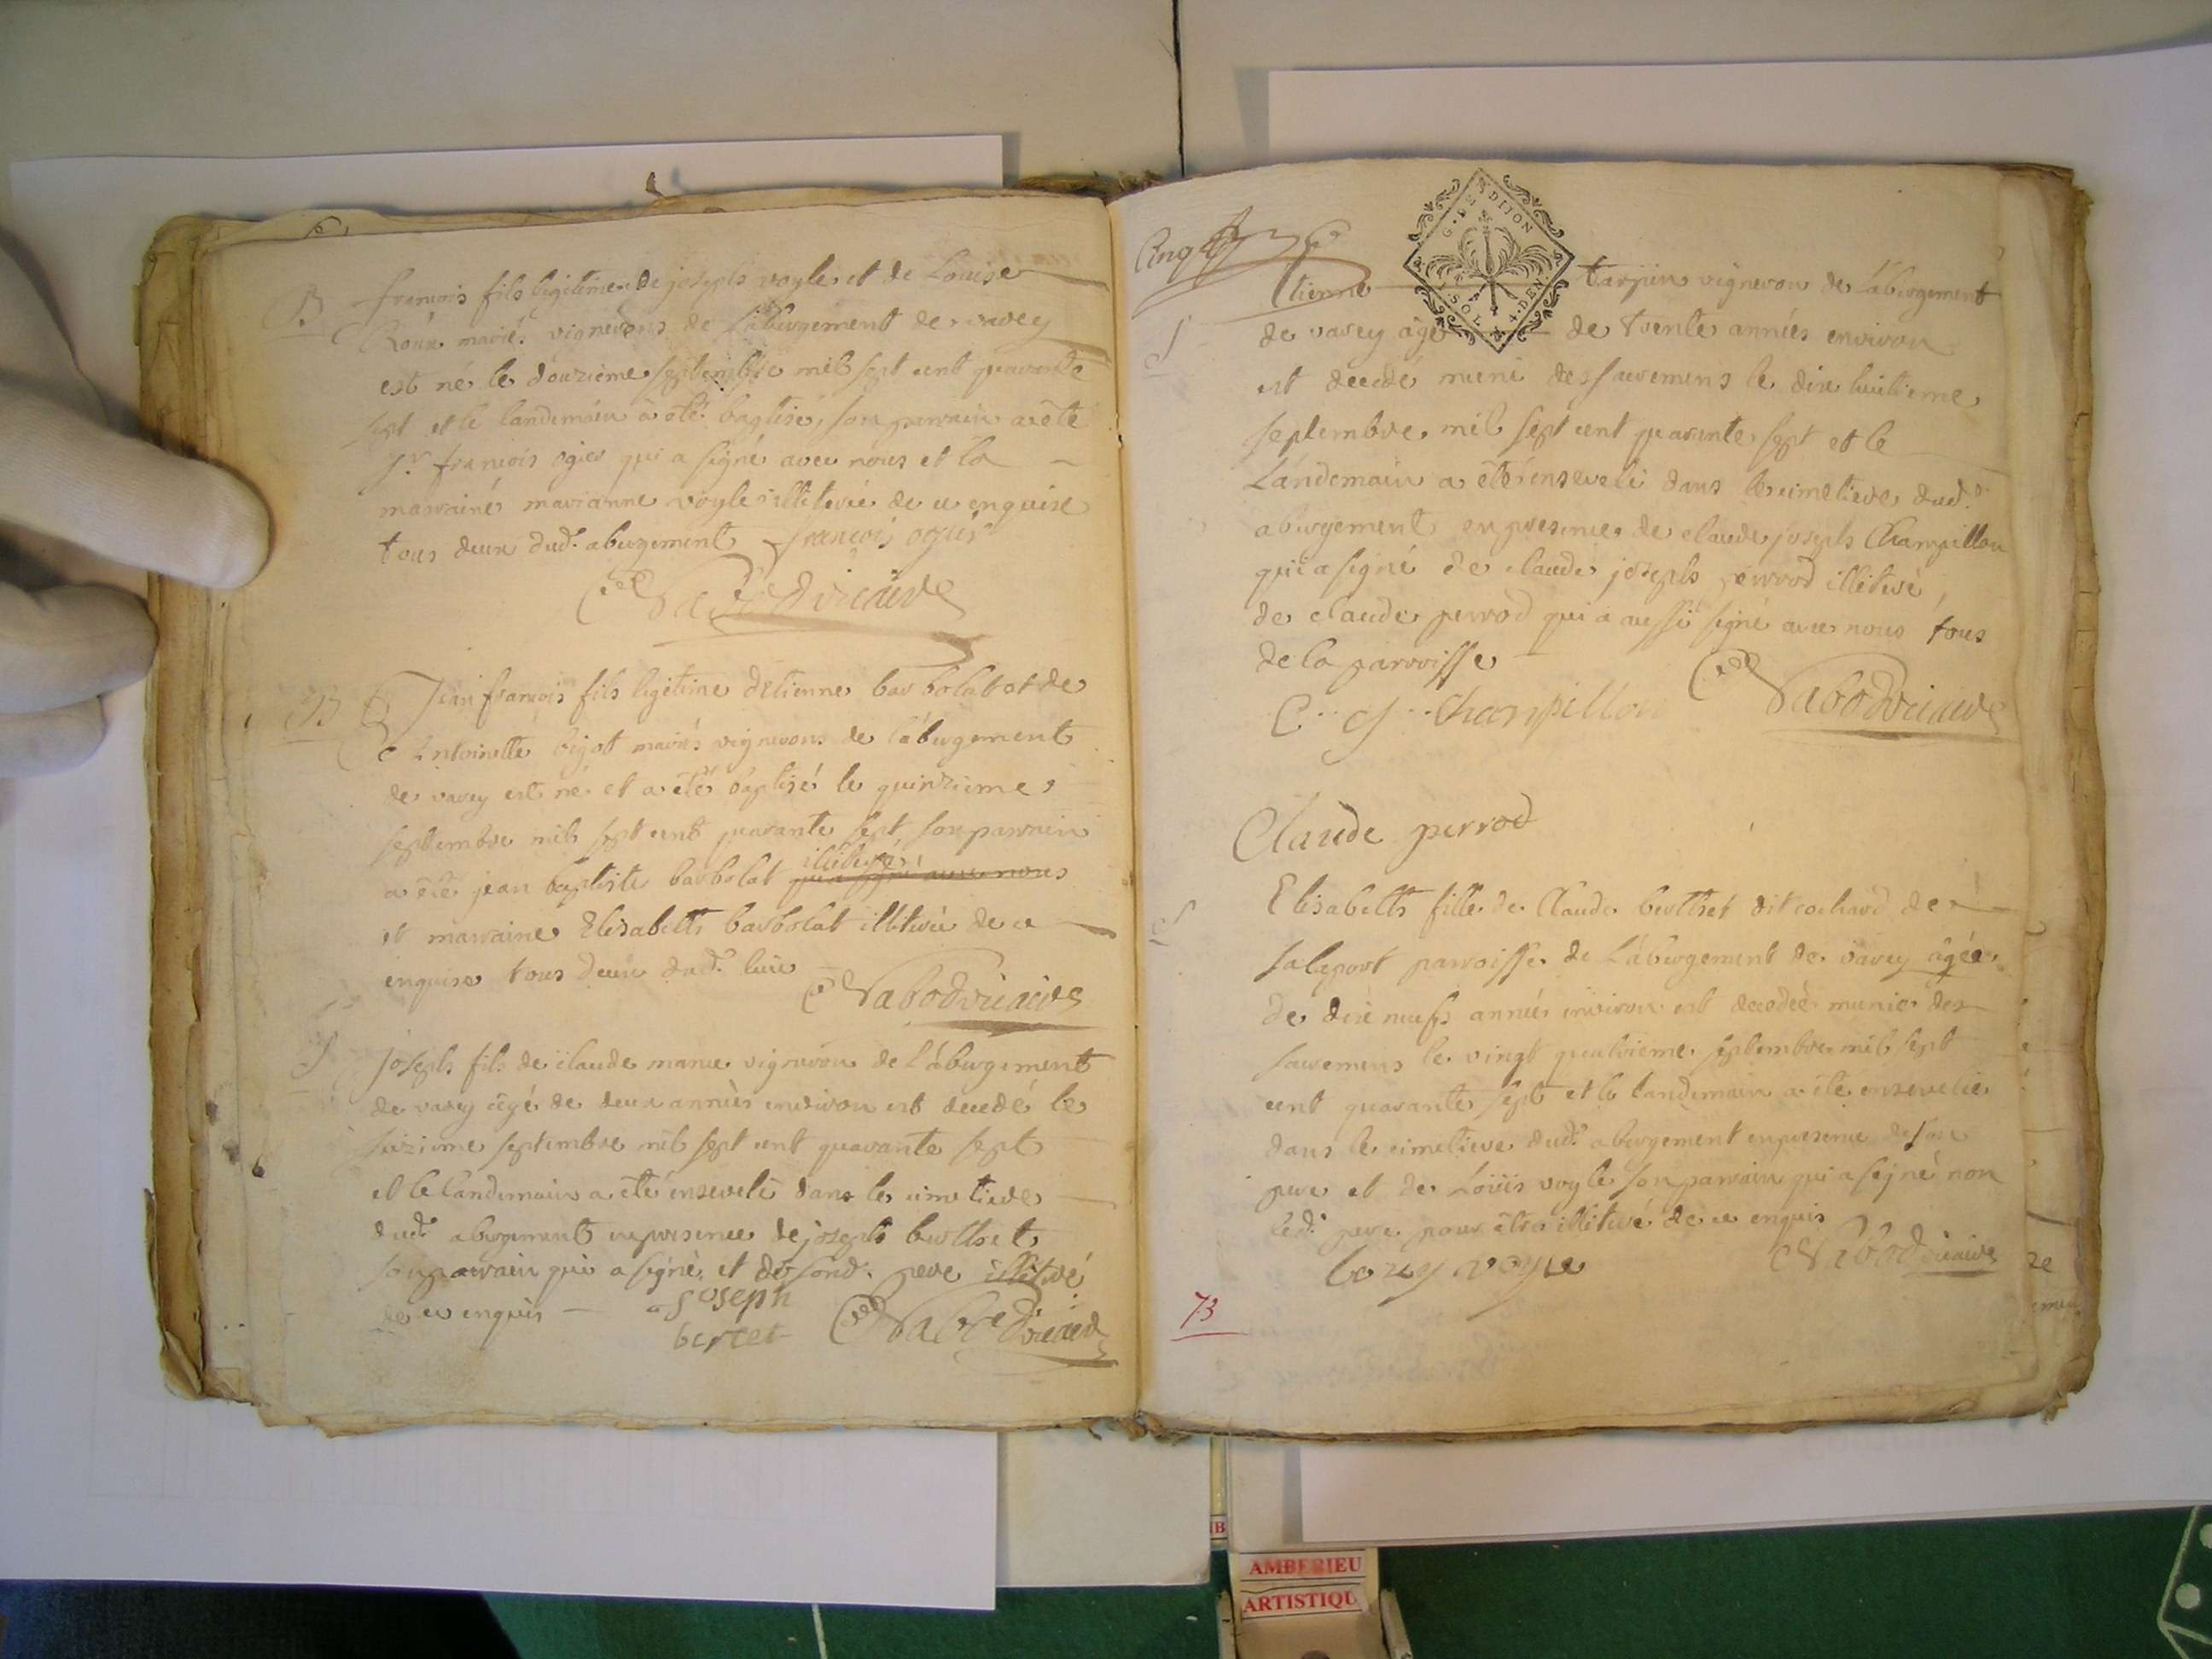 B françois fils legitime de joseph voyle et de Louise
Roux mariés vignerons de L'abergement de varey
est né le douzieme septembre mil sept cent quarante
sept et le landemain a été baptisé, son parrain a été
Sr françois ogier qui a signé avec nous et la
marraine marianne voyle illiterée de ce enquise
tous deux dud. abergement françois ogier
B Jean françois fils legitime detienne barbolat et de
Antoinette bigot mariés vignerons de l'abergement
de varey est né et a été baptisé le quinzieme
septembre mil sept cent quarante sept, son parrain
a été jean baptiste barbolat illiteré qui a signé avec nous
et marraine Elisabeth barbolat illiterée de ce
enquise tous deux dud. lieu
S joseph fils de claude manue vigneron de l'abergement
de varey âgé de deux années environ est decedé le
seizieme septembre mil sept cent quarante sept
et le landemain a été enseveli dans le cimetiere
dud. abergement en presence de joseph berthet
son parrain qui a signé et de sond. pere illiteré
de ce enquis joseph
bertet
Cinq
S Etienne tarpin vigneron de L'abergement
G. DE DIJON
DEN.
SOL
de varey âgé de trente années environ
est decedé muni des sacremens le dix huitieme
septembre mil sept cent quarante sept et le
Landemain a été enseveli dans le cimetiere dud.
abergement en presence de claude joseph Champillon
qui a signé de claude joseph perrod illiteré,
de claude perrod qui a aussi signé avec nous tous
de la parroisse
C.. J.. Champillon
Claude perrod
S Elisabeth fille de Claude berthet dit cochard de
saleport parroisse de L'abergement de varey âgée
de dix neufs années environ est decedée munie des
sacremens le vingt quatrieme septembre mil sept
cent quarante sept et le landemain a été ensevelie
dans le cimetiere dud. abergement en presence de son
pere et de Loüis voyle son parrain qui a signé non
led. pere pour être illiteré de ce enquis
louy voyle
73
AMBERIEU
ARTISTIQU